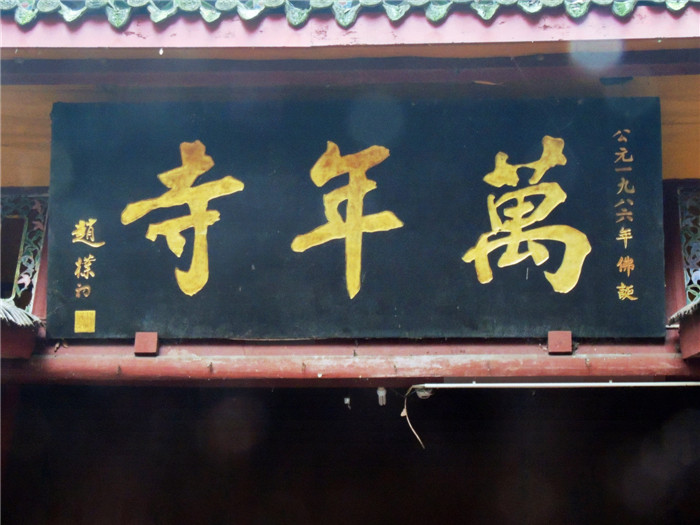 公元一九八六年佛誕
萬年寺
趙樸初